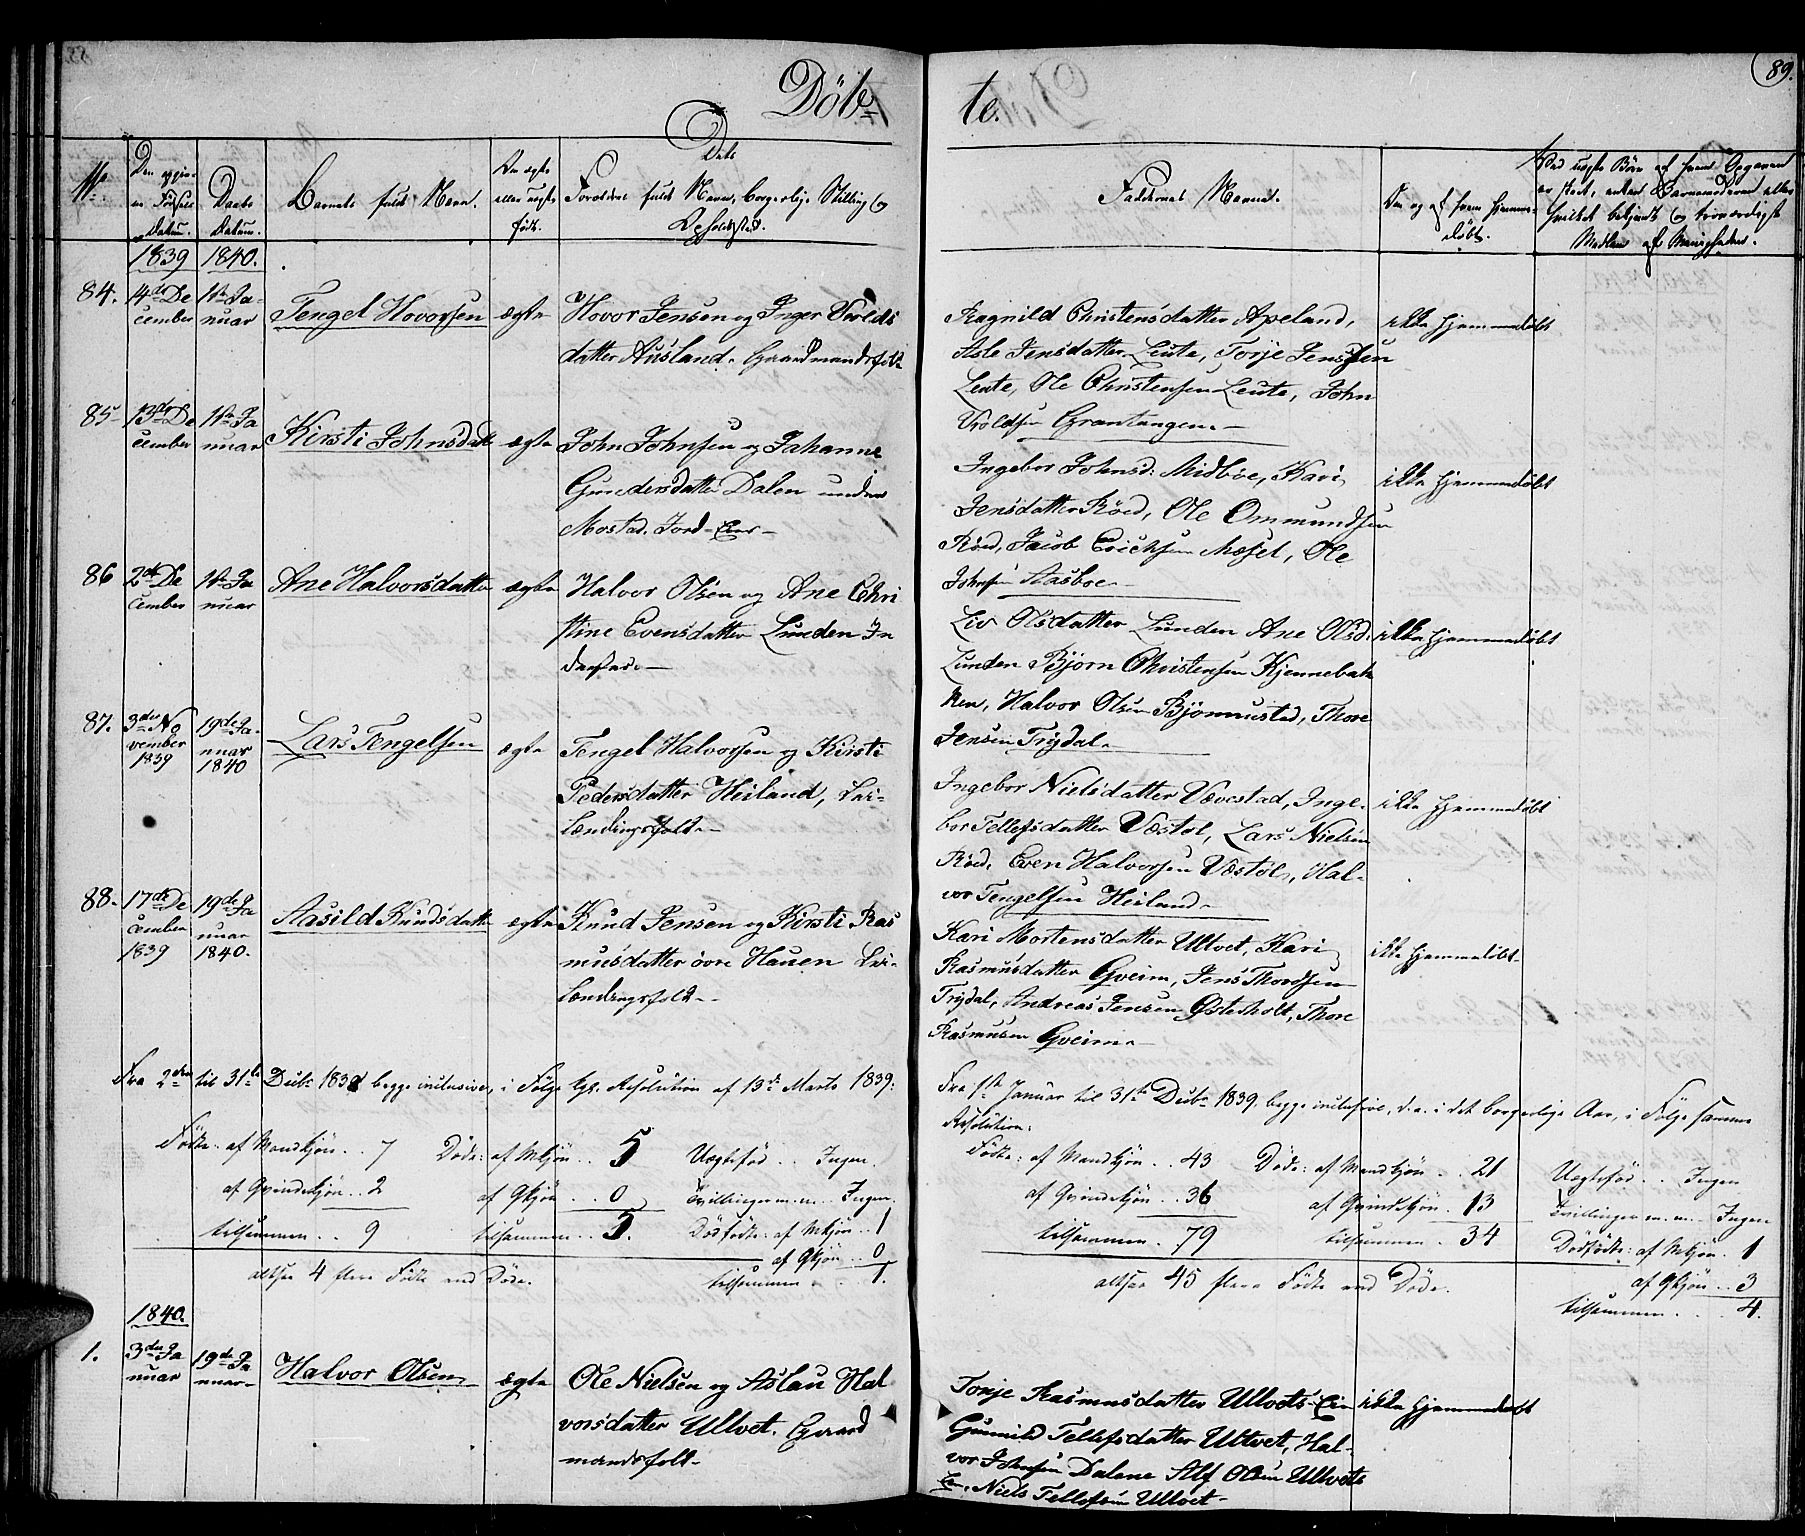 Döb-
te.
89.
No.
Den opgiv-
ne Födsels
Datum.
Daabs
Datum.
Barnets fulde Navn.
Om ægte
eller uægte
födt.
Dets
Forældres fulde Navn, borgerlige Stilling og
Opholdssted.
Faddernes Navne.
Om og af hvem hjemme-
döbt.
Ved uægte Börn af hvem Opgaven
er skeet, enten Barnemoderen eller
hvilket bekjendt og troværdigt
Medlem af Menigheden.
1839 1840.
84.
14de De
cember
1ste Ja-
nuar
Tengel Hovorsen
ægte
Hovor Jensen og Inger Vrolds
datter Ausland. Gaardmandsfolk
Ragnild Christensdatter Apeland,
Asle Jensdatter Leute, Torje Jensen
Leute, Ole Christensen Leute, John
Vroldsen Grantangen.
ikke hjemmedöbt
85.
13de De
cember
1ste Ja
nuar
Kirsti Johnsdatt
ægte
John Johnsen og Johanne
Gundersdatter Dalen under
Mostad. Jord-Eier
Ingebor Johnsd: Midböe, Kari
Jensdatter Röed, Ole Ommundsen
Röed, Jacob Erichsen Mæsel, Ole
Johnsen Aasboe
ikke hjemmedöbt
86
2den De
cember
1ste Ja
nuar
Ane Halvorsdatter
ægte
Halvor Olsen og Ane Chri
stine Evensdatter Lunden In
derster
Liv Olsdatter Lunden Ane Olsd.
Lunden Björn Christensen Kjennebak
ken, Halvor Olsen Björnnestad, Thore
Jensen Trydal
ikke hjemmedöbt
87.
3die No
vember
1839
19de Ja-
nuar
1840
Lars Tengelsen
ægte
Tengel Halvorsen og Kirsti
Pedersdatter Heiland, Lei-
lændingsfolk
Ingebor Nielsdatter Vævestad, Inge-
bor Tellefsdatter Væstöl, Lars Nielsen
Röed, Even Halvorsen Væstöl, Hal-
vor Tengelsen Heiland
ikke hjemmedöbt
88.
17de De
cember
1839
19de Ja
nuar
1840.
Aasild Knudsdatt
ægte
Knud Jensen og Kirsti Ras
musdatter övre Hauen Lei-
lændingsfolk
Kari Mortensdatter Ulltvet, Kari
Rasmusdatter Gveim, Jens Thordsen
Trydal, Andreas Jensen Østerholt, Thore
Rasmusen Gveim
ikke hjemmedöbt
Fra 2den til 31te Decbr 1838 begge inclusive, i Fölge kgl. Resolution af 13de Marts 1839:
Födte: af Mandkjön .. 7 Döde: af Mkjön .. 5 Uægtefød .. Ingen.
af Qvindekjön .. 2 af Qkjön .. 0 Tvillinger m. m. Ingen
tilsammen .. 9 tilsammen .. 5. Dödfödte: af Mkjön .. 1
af Qkjön .. 0
altsaa 4 flere Födte end Döde. tilsammen .. 1.
Fra 1ste Januar til 31te Decbr 1839, begge inclusive, d. e. i det borgerlige Aar, i Fölge samme
Resolution:
Födte: af Mandkjön .. 43 Döde: af Mandkjön .. 21 Uægtefød .. Ingen
af Qvindekjön .. 36 af Qvindekjön .. 13 Tvillinger m. m. Ingen
tilsammen . 79 tilsammen . 34 Dödfödte: af Mkjön . 1
af Qkjön .. 3
altsaa 45 flere Födte end Döde. tilsammen .. 4.
1840.
1.
3die Ja
nuar
19de Ja
nuar
Halvor Olsen
ægte
Ole Nielsen og Aslau Hal
vorsdatter Ulltvet. Gaard
mandsfolk
Tonje Rasmusdatter Ulltvets-Eie
Gunnild Tellefsdatter Ulltvet, Hal-
vor Johnsen Dalene Alf Olsen Ulltvets
Eie, Niels Tellefsen Ulltvet
ikke hjemmedöbt